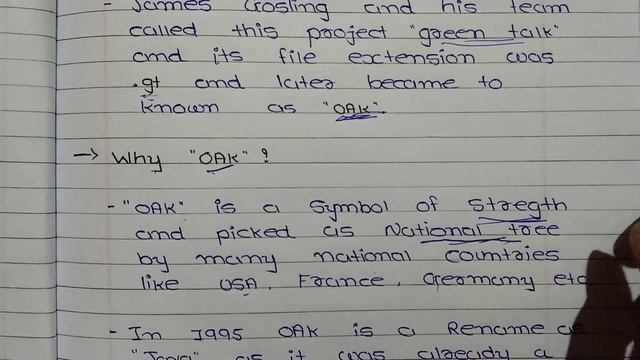 - James Gosling and his team
called this project "green talk"
and its file extension was
.gt and later became to
known as "OAK".
→ Why "OAK" ?
- "OAK" is a symbol of stregth
and picked as National tree
by many national countries
like USA, France, Germany etc
- In 1995 OAK is a Rename as
"Java" as it was already a